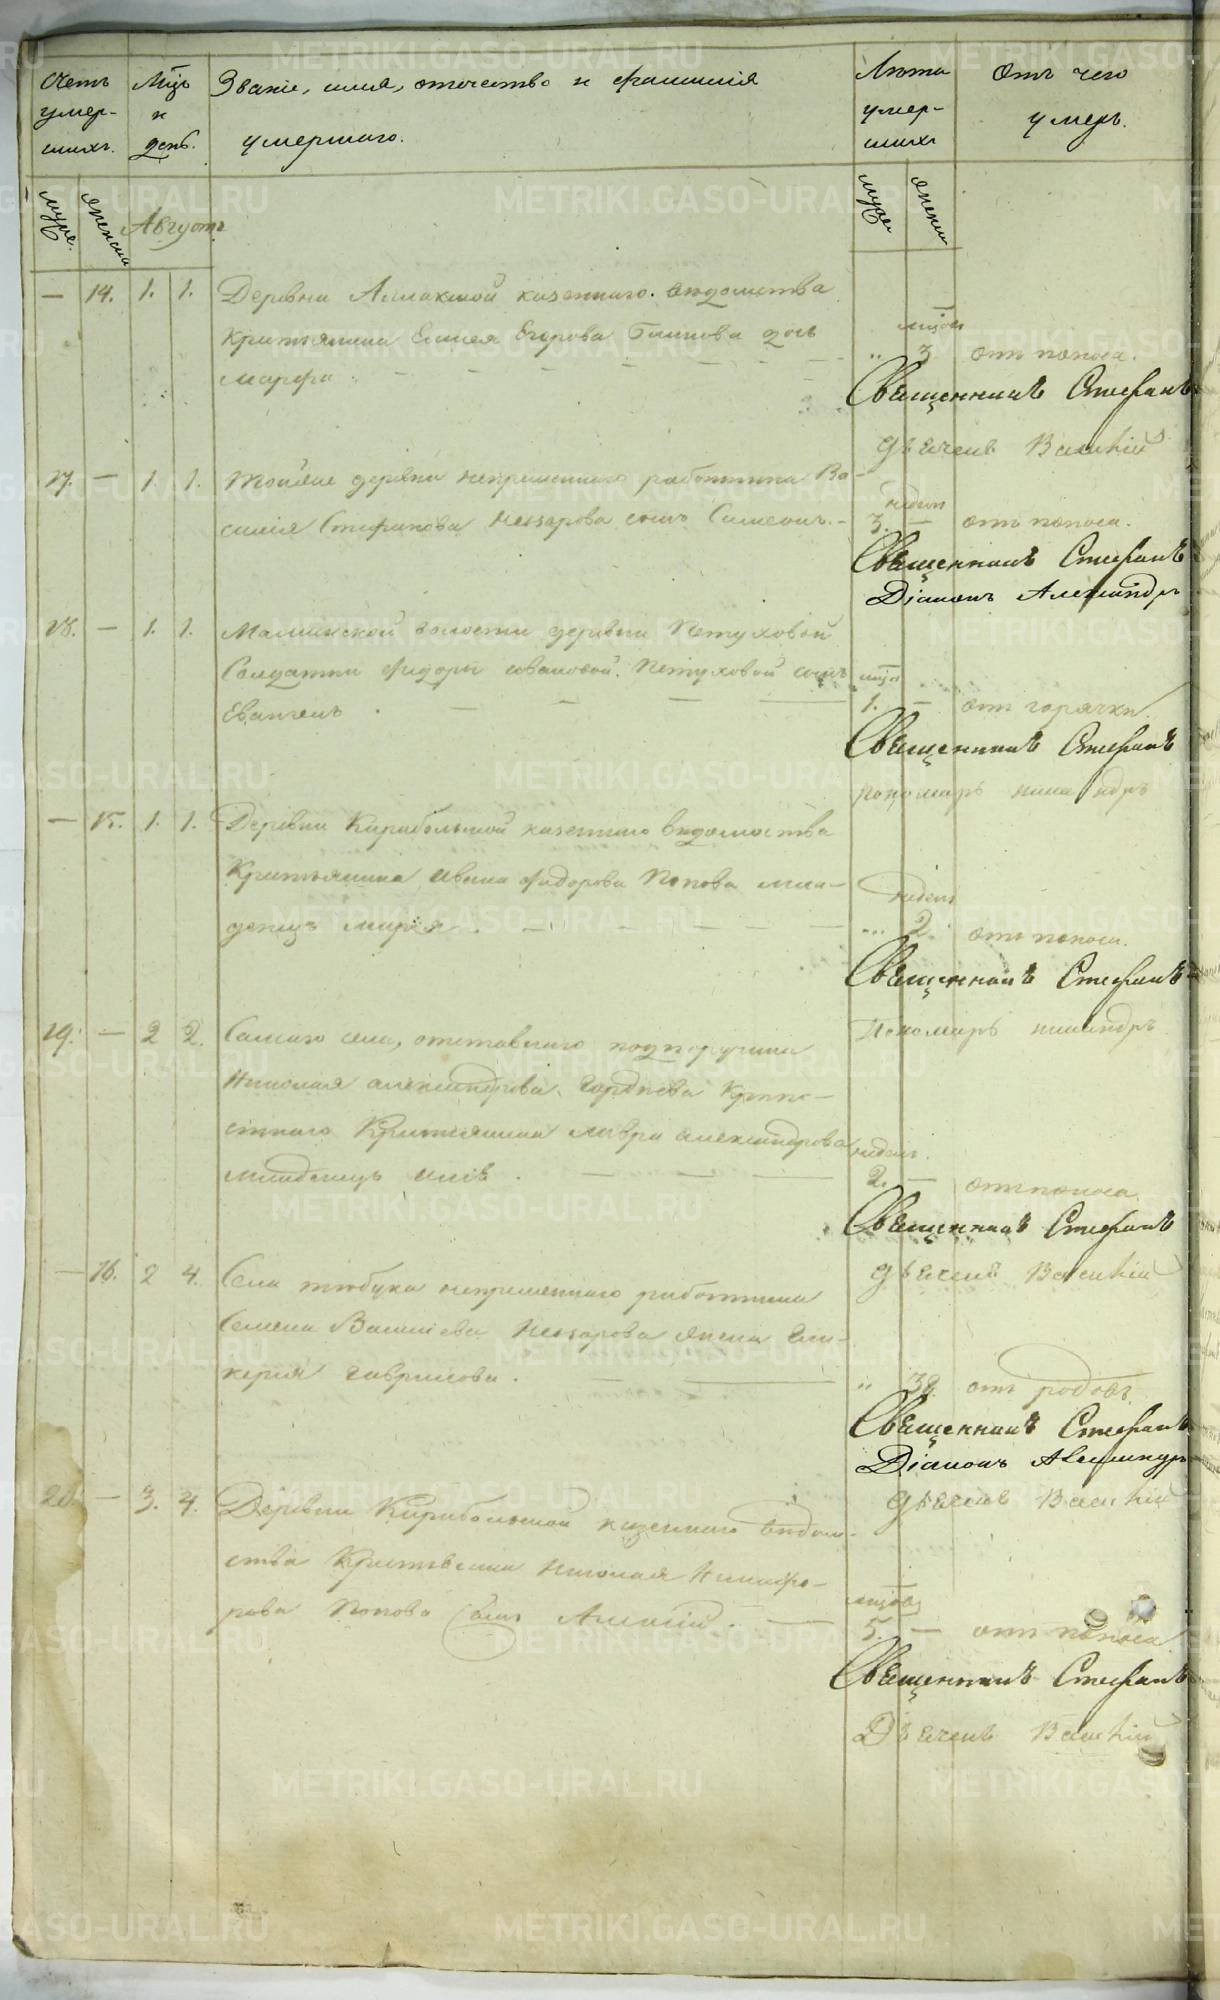 Счетъ умер- шихъ.
Мцъ и день.
Званіе, имя, отчество и фамилія
умершаго.
Лѣта умер- шихъ
Отъ чего
умеръ.
муже. женска
Августъ
муже женск
— 14. 1. 1. Деревни казеннаго вѣдомства
Крестьянина Елисея Егорова дочь
Марфа
мцовъ
" 3 отъ поноса.
Священникъ Стефанъ
дьячекъ Василій
17. — 1. 1. Тойже деревни непременнаго работника Ва-
силія Стефанова Назарова сынъ Симеонъ. -
недѣл
3. — отъ поноса.
Священникъ Стефанъ
Діаконъ Александръ
18. — 1. 1. волости деревни Петуховой
Солдатки Федоры Ивановой Петуховой сынъ
Евангелъ
мцъ
1. — отъ горячки.
Священникъ Стефанъ
пономарь
— 15. 1. 1. Деревни казеннаго вѣдомства
Крестьянина Ивана Федорова Попова мла-
денецъ Марія
недѣл
" 2. отъ поноса.
Священникъ Стефанъ
Пономарь
19. — 2 2. Самаго села, отставнаго подпоручика
Николая Александрова Гордѣева Крѣпо-
стнаго Крестьянина Лавра Александрова
младенецъ
недѣл.
2. — отъ поноса.
Священникъ Стефанъ
дьячекъ Василій
— 16. 2 4. Села Тюбука непременнаго работника
Семена Васильева Назарова жена Гли-
керія Гаврилова.
" 38. отъ родовъ.
Священникъ Стефанъ
Діаконъ Александръ
дьячекъ Василій
20. — 3. 4. Деревни казеннаго вѣдом-
ства Крестьянина Николая Никифо-
рова Попова сынъ
мцовъ
5. — отъ поноса
Священникъ Стефанъ
Дьячекъ Василій
METRIKI.GASO-URAL.RU